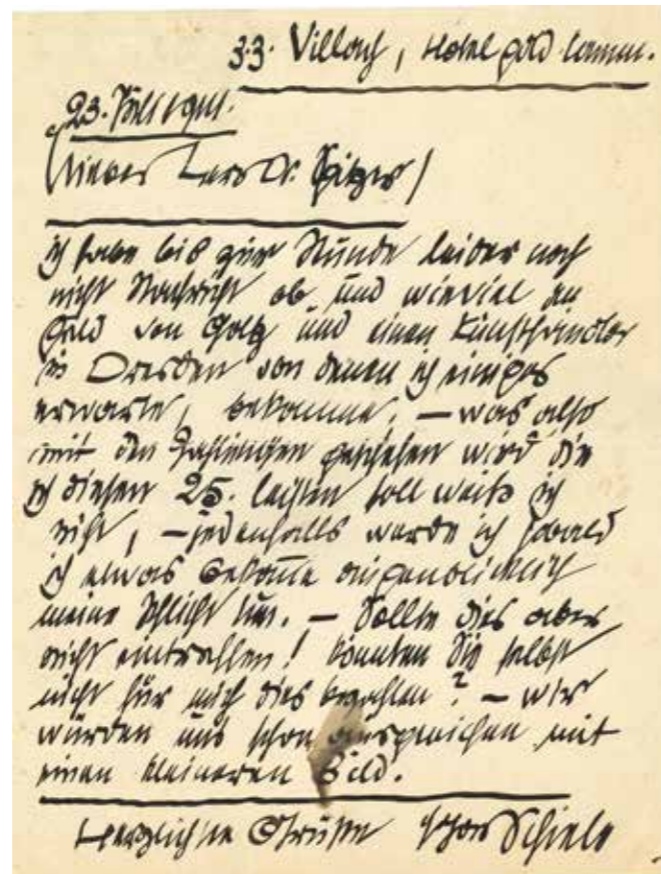 3.3. Villach, Hotel gold Lamm.
23. Juli 1913.
Lieber Herr Dr. Spitzer!
ich habe bis zur Stunde leider noch
nicht Nachricht ob und wieviel an
Geld von Goltz und einen Kunsthändler
in Dresden von denen ich einiges
erwarte, bekomme, – was also
mit den Zahlungen geschehen wird die
ich diesen 25. leisten soll weiß ich
nicht, – jedenfalls werde ich sobald
ich etwas bekom̄e augenblicklich
meine Pflicht tun. – Sollte dies aber
nicht eintreffen! könnten Sie selbst
nicht für mich dies bezahlen? – wir
würden uns schon ausgleichen mit
einen kleineren Bild.
Herzlichste Grüße Egon Schiele